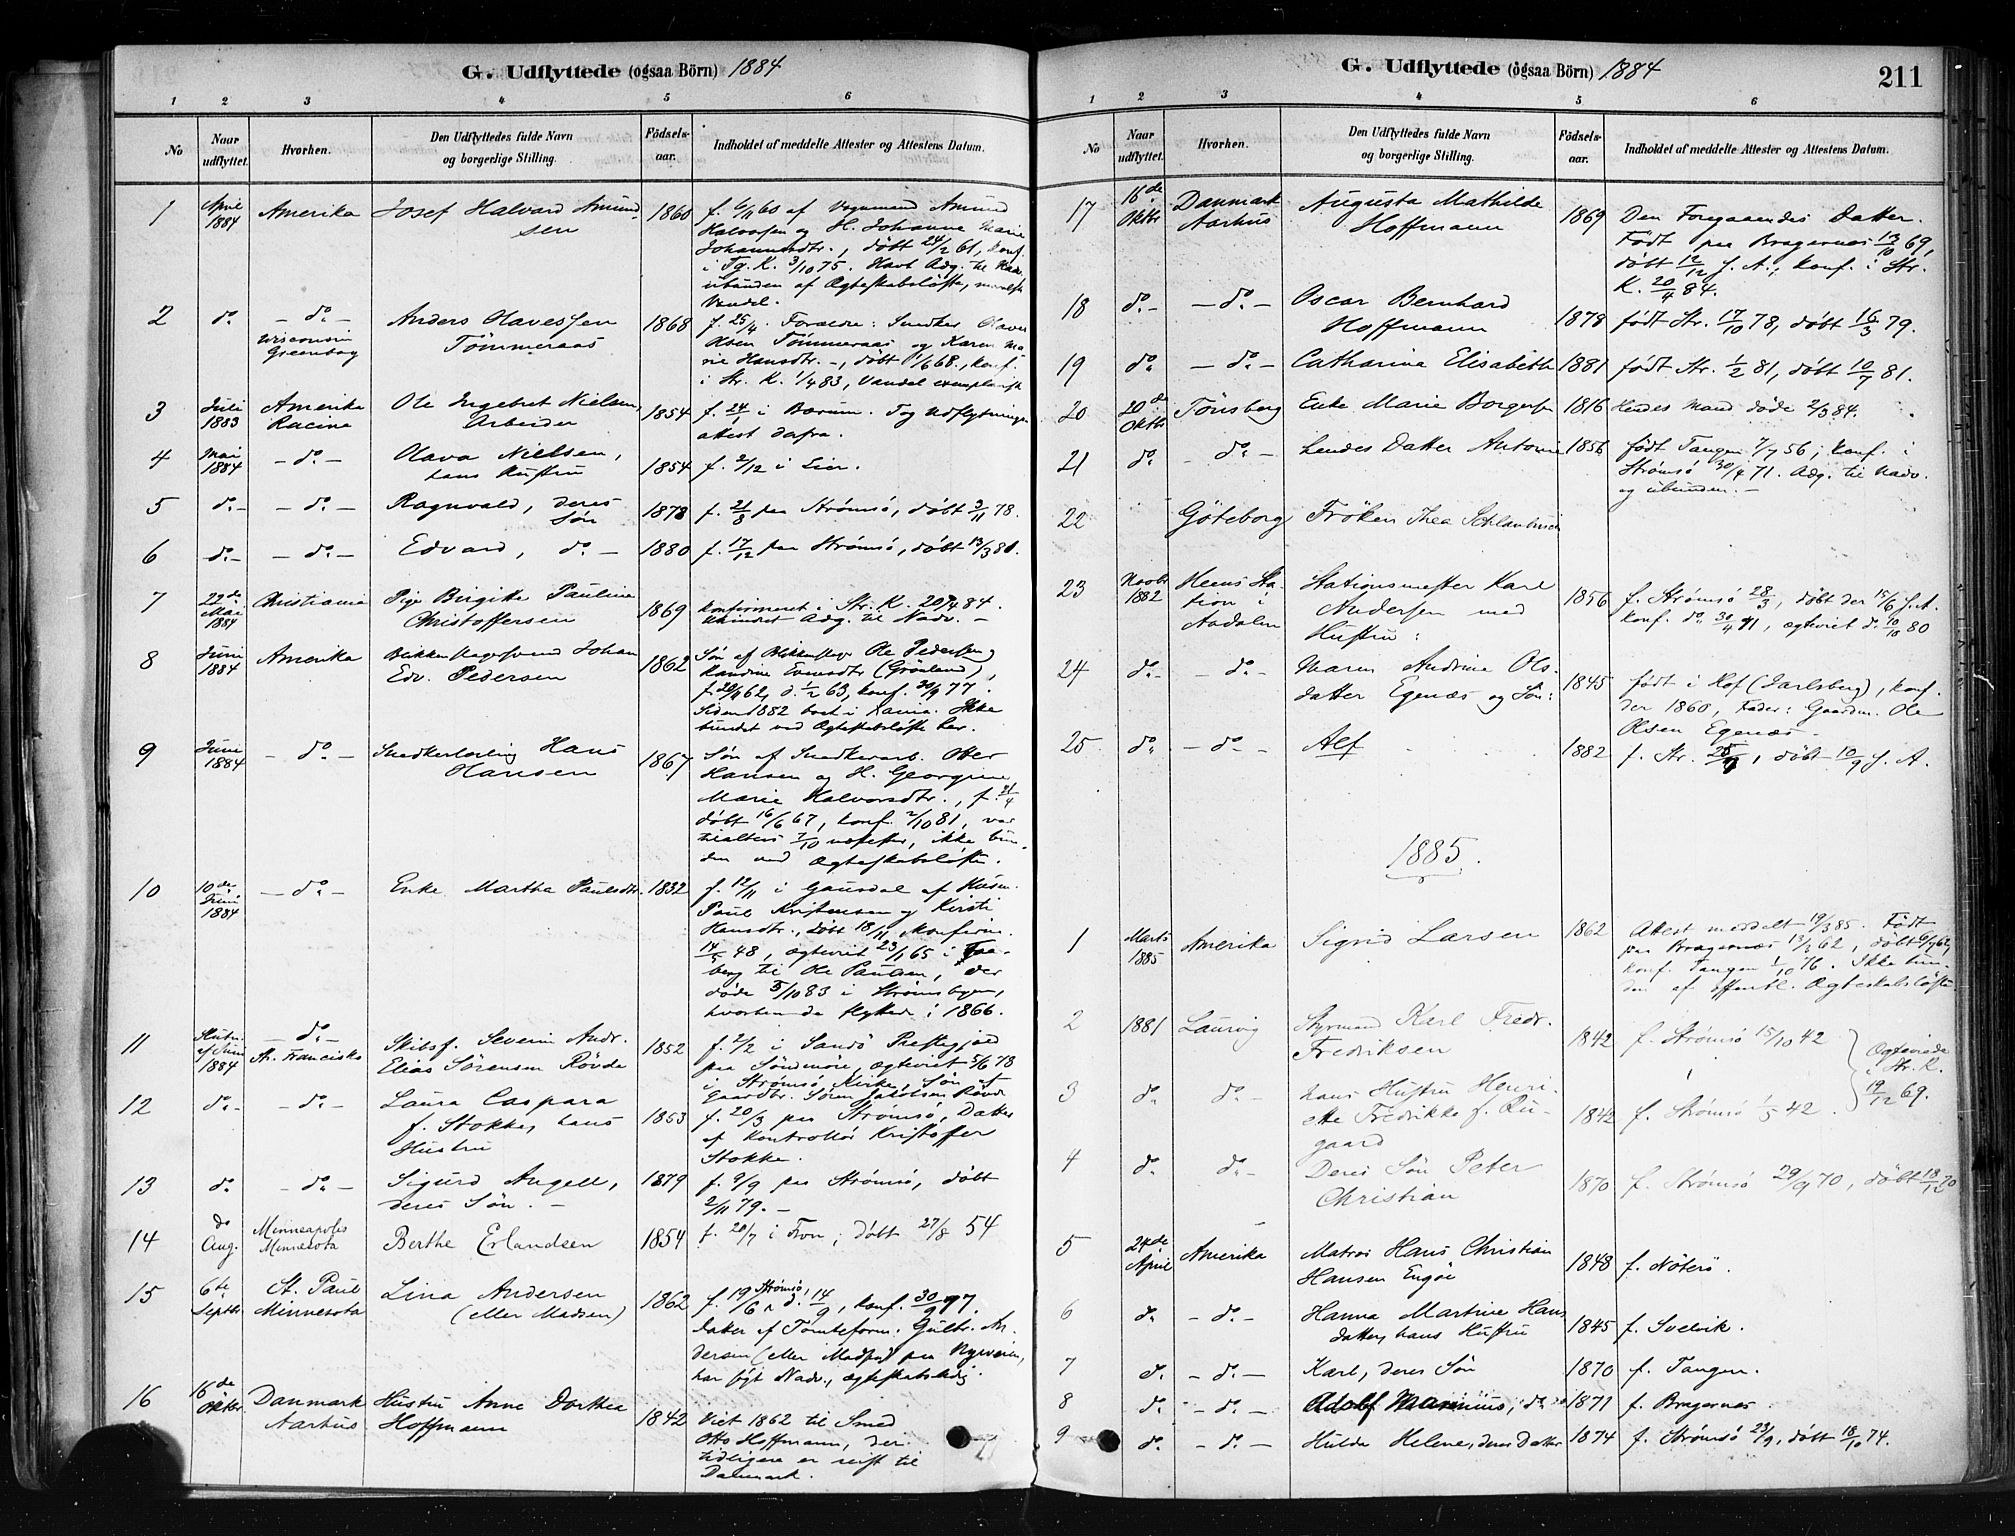 G. Udflyttede (ogsaa Börn) 1884
1 2 3 4 5 6
No
Naar udflyttet.
Hvorhen.
Den Udflyttedes fulde Navn og borgerlige Stilling.
Födsels-aar.
Indholdet af meddelte Attester og Attestens Datum.
1 April 1884 Amerika Josef Halvard Amund-sen 1860 f. 6/11 60 af Vognmand Amund
Halvorsen og H. Johanne Marie
Johannesdtr., døbt 24/2 61, konf.
i Tg. K. 3/10 75. Havt Adg. til Nadv.
ubunden af Ægteskabsløfte,
Vandel.
2 do - do - Wisconsin Greenbay Anders Olavessen Tømmeraas 1868 f. 25/4. Forældre: Snedker Olaves
Olsen Tømmeraas og Karen Ma-
rie Hansdtr. -, døbt 1/6 68., konf.
i Str. K. 1/4 83, Vandel exemplarisk
3 Juli 1883 Amerika Racine Ole Ingebret Nielsen, Arbeider 1854 f. 24/1 i Bærum. Tog Udflytnings
attest dafra.
4 Mai 1884 - do - Olava Nielsen, hans Hustru 1854 f. 2/12 i Lier.
5 do - - do - Ragnvald, deres Søn 1878 f. 21/8 paa Strømsø, døbt 3/11 78.
6 do - - do - Edvard, do - 1880 f. 17/12 paa Strømsø, døbt 13/3 81.
7 22de Mai 1884 Christiania Pige Birgitte Pauline Christoffersen 1869 konfirmeret i Str. K. 20/4 84.
Uhindret Adg. til Nadv. -
8 Juni 1884 Amerika Blikkenslagersvend Johan Edv. Pedersen 1862 Søn af Blikkenslager Ole Pedersen og
Kandine Evensdtr (Grønland),
f. 29/11 62, d. 1/2 63, konf. 30/9 77.
Siden 1882 boet i Xania. Ikke
bundet ved Ægteskabsløfte her.
9 Juni 1884 - do - Snedkerlærling Hans Hansen 1867 Søn af Snedkerarb. Otter
Hansen og H. Georgine
Marie Halvorsdtr., f. 21/4
døbt 16/6 67, konf. 2/10 81, var
tilalters 7/10 næstefter, ikke bun-
den ved Ægteskabsløfte.
10 10de Juni 1884 - do - Enke Martha Paulsdtr. 1832 f. 12/11 i Gausdal af Husm.
Paul Kristensen og Kirsti
Hansdtr., døbt 18/11, konfirm.
14/5 48, ægteviet 23/1 65 i Faa-
berg til Ole Paulsen, der
døde 5/10 83 i Strømsbyen,
hvorhen de flyttede i 1866.
11 Slutn. af Juni 1884 - do - St. Francisko Skibsf. Severin Andr. Elias Sørensen Røvde 1852 f. 2/2 i Sandø Præstegjæld
paa Søndmøre, ægteviet 5/6 78
i Strømsø Kirke, Søn af
Gaardbr. Søren Jakobsen Røvde
12 do - - do - Laura Caspara f. Stokke, hans Hustru 1853 f. 20/3 paa Strømsø, Datter
af Kontrollør Kristoffer
Stokke.
13 do - do - Sigurd Angell, deres Søn. - 1879 f. 9/9 paa Strømsø, døbt
2/11 79. -
14 do Aug. Minneapolis Minnesota Berthe Erlandsen 1854 f. 20/7 i Fron; døbt 27/8 54
15 6te Septbr. St. Paul Minnesota Lina Andersen (eller Madsen) 1862 f. 19/6 Strømsø, d. 14/9, konf. 30/9 77.
Datter af Tømteform. Gulbr. An-
dersen (eller Madsen) paa Nyveien,
har søgt Nadv., ægteskabsledig.
16 16de Oktbr. Danmark Aarhus Hustru Anne Dorthea Hoffmann 1842 Viet 1862 til Smed
Otto Hoffmann, der
tidligere er reist til
Danmark.
G. Udflyttede (ogsaa Börn) 1884
211
1 2 3 4 5 6
No
Naar udflyttet.
Hvorhen.
Den Udflyttedes fulde Navn og borgerlige Stilling.
Födsels-aar.
Indholdet af meddelte Attester og Attestens Datum.
17 16de Oktbr. Danmark Aarhus Augusta Mathilde Hoffmann 1869 Den Foregaaendes Datter.
Født paa Bragernæs 13/10 69,
døbt 12/12 s. A., konf. i Str.
K. 20/4 84.
18 do - - do - Oscar Bernhard Hoffmann 1878 født Str. 17/10 78, døbt 16/3 79.
19 do - do - Catharina Elisabeth 1881 født Str. 1/2 81, døbt 10/7 81.
20 20de Oktbr. Tönsberg Enke Marie Borgersen 1816 Hendes Mand døde 2/3 84.
21 do - do - hendes Datter Antonie 1856 født Tangen 7/7 56; konf. i
Strømsø 30/4 71. Adg. til Nadv.
og ubunden. -
22 Göteborg Fröken Thea
23 Novbr 1882 Heens Sta-tion i Aadalen Stationsmester Karl Andersen med Hustru: 1856 f. Strømsø 28/3, døbt der 15/6 s. A.
konf. do 30/4 71, ægteviet do 10/10 80
24 do - - do - Maren Andrine Ols-datter Egenæs og Søn: 1845 født i Hof (Jarlsberg), konf.
der 1860, Fader: Gaardm. Ole
Olsen Egenæs.
25 do - do - Alf 1882 f. Str. , døbt 10/9 s. A.
1885.
1 Marts 1885 Amerika Sigrid Larsen 1862 Attest meddelt 19/3 85. Født
paa Bragernæs 13/3 62, døbt 6/7 62,
konf. Tangen 1/10 76. Ikke bun-
den af offentl. Ægteskabsløfte
2 1881 Laurvig Styrmand Karl Fredr. Fredriksen 1842 f. Strømsø 15/10 42
3 do do - hans Hustru Henri-ette Fredrikke f. Ru-gaard 1842 f. Strømsø 1/5 42.
Ægteviede i Str. K. 19/12 69.
4 do do - Deres Søn Peter Christian 1870 f. Strømsø 29/9 70, døbt 18/12 70
5 24de April Amerika Matros Hans Christian Hansen Engøe 1848 f. Nøterö.
6 do - do - Hanna Martine Hans datter, hans Hustru 1845 f. Svelvik.
7 do - do - Karl, deres Søn 1870 f. Tangen.
8 do - do - Adolf Marinius, do 1871 f. Bragernæs.
9 do - do - Hulda Helene, deres Datter 1874 f. Strømsø 23/9, døbt 18/10 74.